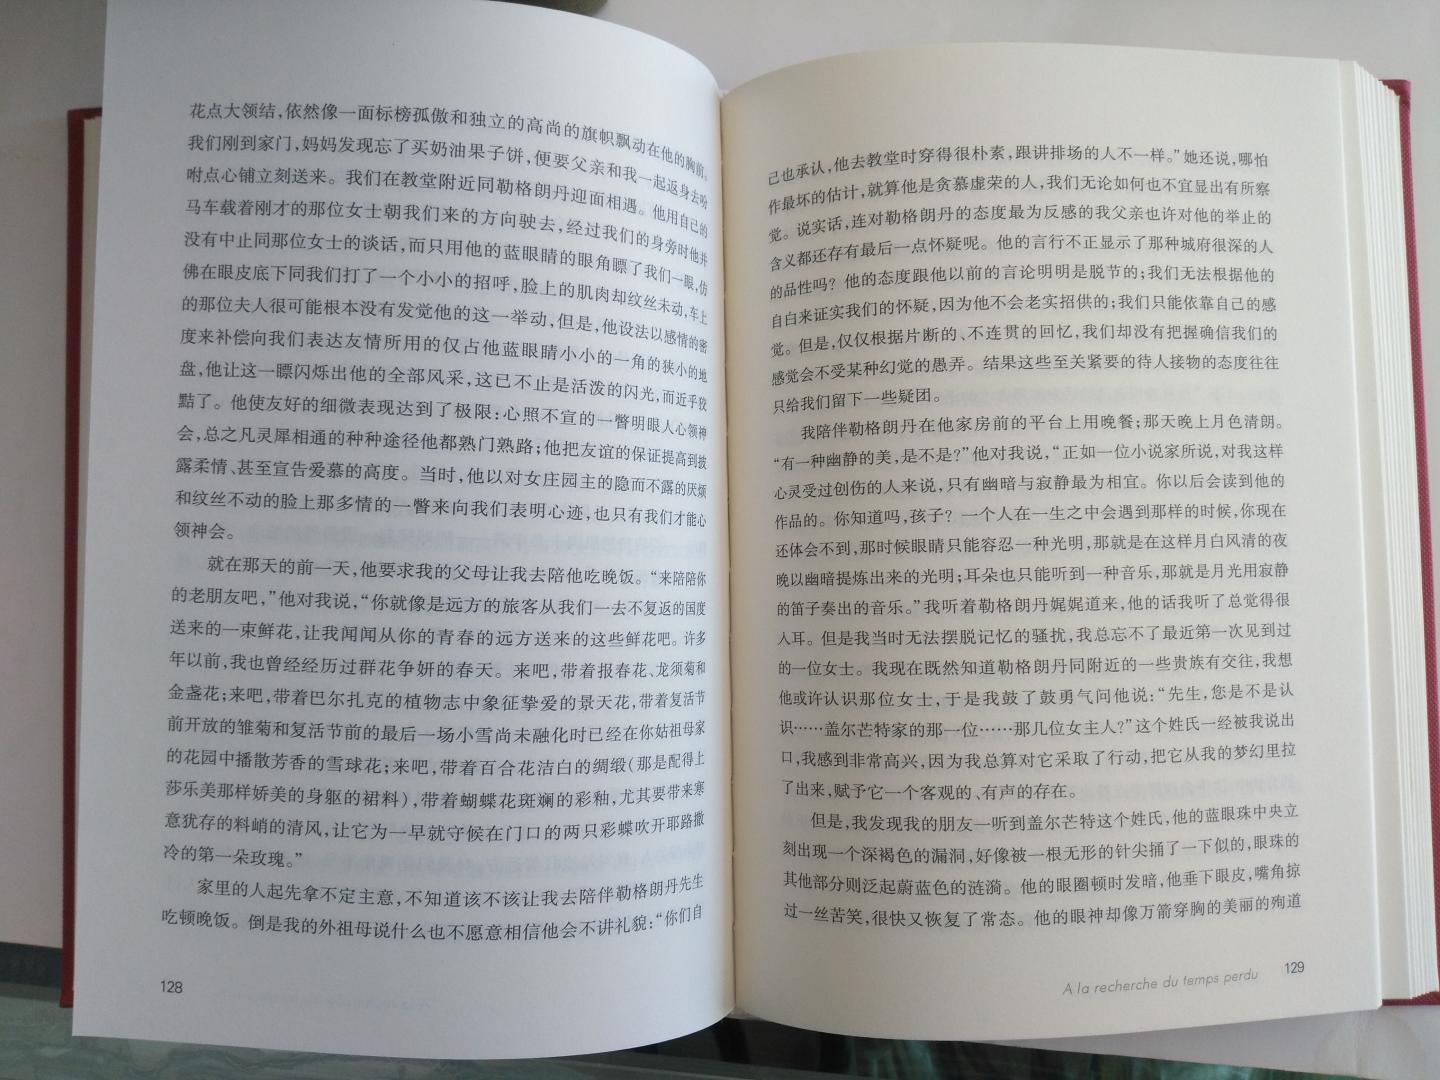 花点大领结，依然像一面标榜孤傲和独立的高尚的旗帜飘动在他的胸前。
我们刚到家门，妈妈发现忘了买奶油果子饼，便要父亲和我一起返身去吩
咐点心铺立刻送来。我们在教堂附近同勒格朗丹迎面相遇。他用自己的
马车载着刚才的那位女士朝我们来的方向驶去，经过我们的身旁时他并
没有中止同那位女士的谈话，而只用他的蓝眼睛的眼角瞟了我们一眼，仿
佛在眼皮底下同我们打了一个小小的招呼，脸上的肌肉却纹丝未动，车上
的那位夫人很可能根本没有发觉他的这一举动，但是，他设法以感情的密
度来补偿向我们表达友情所用的仅占他蓝眼睛小小的一角的狭小的地
盘，他让这一瞟闪烁出他的全部风采，这已不止是活泼的闪光，而近乎狡
黠了。他使友好的细微表现达到了极限：心照不宣的一瞥明眼人心领神
会，总之凡灵犀相通的种种途径他都熟门熟路；他把友谊的保证提高到披
露柔情、甚至宣告爱慕的高度。当时，他以对女庄园主的隐而不露的厌烦
和纹丝不动的脸上那多情的一瞥来向我们表明心迹，也只有我们才能心
领神会。
就在那天的前一天，他要求我的父母让我去陪他吃晚饭。“来陪陪你
的老朋友吧，”他对我说，“你就像是远方的旅客从我们一去不复返的国度
送来的一束鲜花，让我闻闻从你的青春的远方送来的这些鲜花吧。许多
年以前，我也曾经经历过群花争妍的春天。来吧，带着报春花、龙须菊和
金盏花；来吧，带着巴尔扎克的植物志中象征挚爱的景天花，带着复活节
前开放的雏菊和复活节前的最后一场小雪尚未融化时已经在你姑祖母家
的花园中播散芳香的雪球花；来吧，带着百合花洁白的绸缎（那是配得上
莎乐美那样娇美的身躯的裙料），带着蝴蝶花斑斓的彩釉，尤其要带来寒
意犹存的料峭的清风，让它为一早就守候在门口的两只彩蝶吹开耶路撒
冷的第一朵玫瑰。”
家里的人起先拿不定主意，不知道该不该让我去陪伴勒格朗丹先生
吃顿晚饭。倒是我的外祖母说什么也不愿意相信他会不讲礼貌：“你们自
128
己也承认，他去教堂时穿得很朴素，跟讲排场的人不一样。”她还说，哪怕
作最坏的估计，就算他是贪慕虚荣的人，我们无论如何也不宜显出有所察
觉。说实话，连对勒格朗丹的态度最为反感的我父亲也许对他的举止的
含义都还存有最后一点怀疑呢。他的言行不正显示了那种城府很深的人
的品性吗？他的态度跟他以前的言论明明是脱节的；我们无法根据他的
自白来证实我们的怀疑，因为他不会老实招供的；我们只能依靠自己的感
觉。但是，仅仅根据片断的、不连贯的回忆，我们却没有把握确信我们的
感觉会不受某种幻觉的愚弄。结果这些至关紧要的待人接物的态度往往
只给我们留下一些疑团。
我陪伴勒格朗丹在他家房前的平台上用晚餐；那天晚上月色清朗。
“有一种幽静的美，是不是？”他对我说，“正如一位小说家所说，对我这样
心灵受过创伤的人来说，只有幽暗与寂静最为相宜。你以后会读到他的
作品的。你知道吗，孩子？一个人在一生之中会遇到那样的时候，你现在
还体会不到，那时候眼睛只能容忍一种光明，那就是在这样月白风清的夜
晚以幽暗提炼出来的光明；耳朵也只能听到一种音乐，那就是月光用寂静
的笛子奏出的音乐。”我听着勒格朗丹娓娓道来，他的话我听了总觉得很
入耳。但是我当时无法摆脱记忆的骚扰，我总忘不了最近第一次见到过
的一位女士。我现在既然知道勒格朗丹同附近的一些贵族有交往，我想
他或许认识那位女士，于是我鼓了鼓勇气问他说：“先生，您是不是认
识……盖尔芒特家的那一位……那几位女主人？”这个姓氏一经被我说出
口，我感到非常高兴，因为我总算对它采取了行动，把它从我的梦幻里拉
了出来，赋予它一个客观的、有声的存在。
但是，我发现我的朋友一听到盖尔芒特这个姓氏，他的蓝眼珠中央立
刻出现一个深褐色的漏洞，好像被一根无形的针尖捅了一下似的，眼珠的
其他部分则泛起蔚蓝色的涟漪。他的眼圈顿时发暗，他垂下眼皮，嘴角掠
过一丝苦笑，很快又恢复了常态。他的眼神却像万箭穿胸的美丽的殉道
A la recherche du temps perdu 129